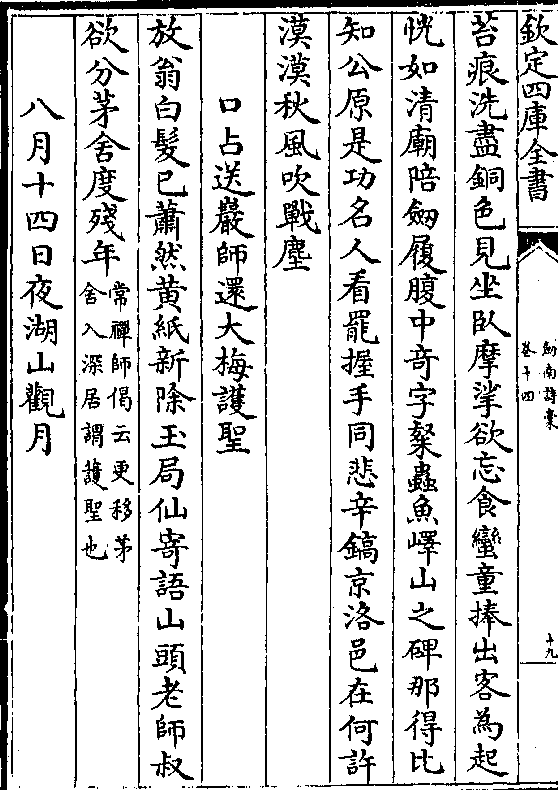 欽定四庫全書
劍南詩稾
卷十四
十九
苔痕洗盡銅色見坐臥摩挲欲忘食蠻童捧出客為起
恍如清廟陪劒履腹中竒字粲蟲魚嶧山之碑那得比
知公原是功名人看罷握手同悲辛鎬京洛邑在何許
漠漠秋風吹戰塵
口占送巖師還大梅護聖
放翁白髮已蕭然黃紙新除玉局仙寄語山頭老師叔
欲分茅舍度殘年常禪師偈云更移茅
舍入深居謂護聖也
八月十四日夜湖山觀月